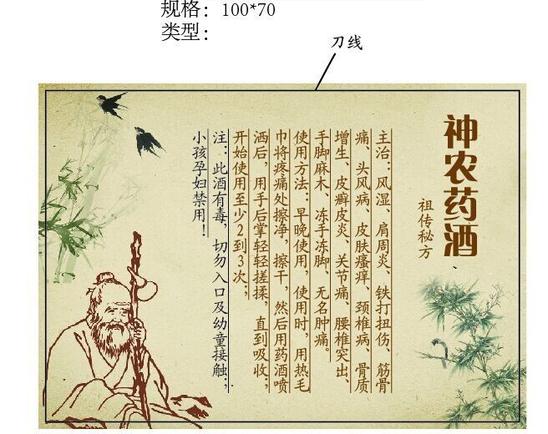 规格：100*70
类型：
刀线
神农药酒
祖传秘方
主治：风湿、肩周炎、铁打扭伤、筋骨
痛、头风病、皮肤瘙痒、颈椎病、骨质
增生、皮癣皮炎、关节痛、腰椎突出、
手脚麻木、冻手冻脚、无名肿痛。
使用方法：早晚使用，使用时，用热毛
巾将疼痛处擦净，擦干，然后用药酒喷
洒后，用手后掌轻轻搓揉，直到吸收；
开始使用至少2到3次；
注：此酒有毒，切勿入口及幼童接触；
小孩孕妇禁用！